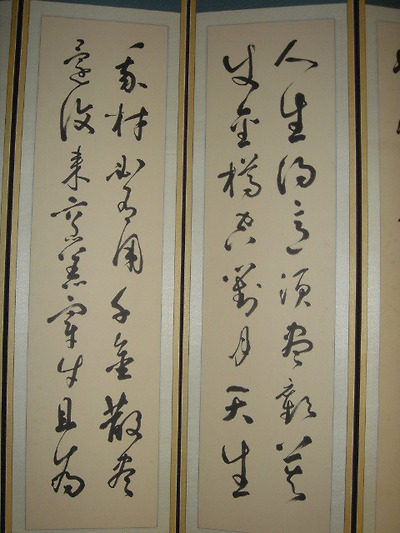 人生得意須盡歡莫
使金樽空對月天生
我材必有用千金散盡
還復來烹羔宰牛且為